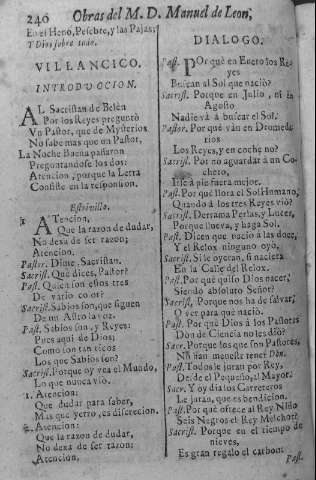 240 Obras del M. D. Manuel de Leon,
En el Heno, Pesebre, y las Pajas;
Y Dios sobre todo.
VILLANCICO.
INTRODUCCION.
AL Sacristan de Belén
Por los Reyes preguntó
Vn Pastor, que de Mysterios
No sabe mas que vn Pastor,
La Noche Buena passaron
Preguntandose los dos:
Atencion, porque la Letra
Consiste en la responsion.
Estrivillo.
1 ATencion,
Que la razon de dudar,
No dexa de ser razon;
Atencion.
Pastor. Dime, Sacristan.
Sacrist. Què dices, Pastor?
Past. Quien son estos tres
De vario color?
Sacrist. Sabios son, que siguen
De vn Astro la voz.
Past. Sabios son, y Reyes:
Pues aqui de Dios;
Como son tan ricos
Los que Sabios son?
Sacrist. Porque oy vea el Mundo,
Lo que nunca viò.
1. Atencion:
Que dudar para saber,
Mas que yerro, es discrecion.
2. Atencion:
Que la razon de dudar
No dexa de ser razon:
Atencion,
DIALOGO.
Past. POr què en Enero los Reyes
Buscan al Sol que naciò?
Sacrist. Porque en Julio, ni en
Agosto
Nadie và à buscar el Sol.
Pastor. Por què vàn en Dromedarios
Los Reyes, y en coche no?
Sacrist. Por no aguardar à vn Cochero,
Irse à pie fuera mejor.
Past. Por què llora el Sol Humano,
Quando à los tres Reyes viò?
Sacrist. Derrama Perlas, y Luces,
Porque llueva, y haga Sol.
Past. Dicen que nacio à las doce,
Y el Relox ninguno oyò.
Sacrist. Si le oyeran, si naciera
En la Calle del Relox.
Past. Por què quiso Dios nacer,
Siendo absoluto Señor?
Sacrist. Porque nos ha de salvar,
O ver para què naciò.
Past. Por què Dios à los Pastores
Don de Ciencia no les diò?
Sacr. Porque los que son Pastores,
No han menester tener Don.
Past. Todos le juran por Rey,
Desde el Pequeño, al Mayor?
Sacr. Y oy dia los Carreteros
Le juran, que es bendicion.
Past. Por què ofrece al Rey Niño
Seis Negros el Rey Melchor?
Sacrist. Porque en el tiempo de
nieves,
Es gran regalo el carbon.
Past.